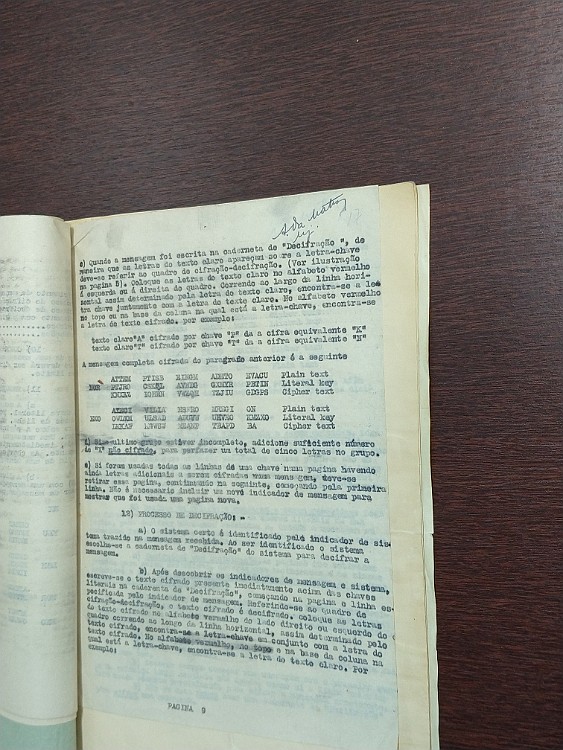 c) Quando a mensagem foi escrita na caderneta de "Decifração ", de
maneira que as letras do texto claro apareçam sobre a letra-chave
deve-se referir ao quadro de cifração-decifração. (Ver ilustração
na pagina 5). Coloque as letras do texto claro no alfabeto vermelho
á esquerda ou á direita do quadro. Correndo ao largo da linha hori-
zontal assim determinado pela letra do texto claro, encontra-se a le
tra chave juntamente com a letra do texto claro. No alfabeto vermelho
no topo ou na base da coluna na qual está a letra-chave, encontra-se
a letra do texto cifrado. por exemplo:
texto claro"A" cifrado por chave "P" da a cifra equivalente "K"
texto claro"T" cifrado por chave "T" da a cifra equivalente "N"
A mensagem completa cifrada do paragrafo anterior é a seguinte
ATTEM EVACU Plain text
Literal key
GDGPS Cipher text
ON Plain text
Literal key
BA Cipher text
ultimo grupo estiver incompleto, adicione suficiente número
de "X" não cifrado, para perfazer um total de cinco letras no grupo.
Si forem usadas todas as linhas de uma chave numa pagina havendo
ainda letras adicionais a serem cifradas numa mensagem, deve-se
retirar essa pagina, continuando na seguinte, começando pela primeira
linha. Não é necessario incluir um novo indicador de mensagem para
mostrar que foi usada uma pagina nova.
12) PROCESSO DE DECIFRAÇÃO: -
a) O sistema certo é identificado pelo indicador de sis-
tema trazido na mensagem recebida. Ao ser identificado o sistema
escolha-se a caderneta de "Decifração" do sistema para decifrar a
mensagem.
b) Após descobrir os indicadores de mensagem e sistema,
escreva-se o texto cifrado presente imediatamente acima das chaves
literais na caderneta de "Decifração", começando na pagina e linha es-
pecificada pelo indicador de mensagem. Referindo-se ao quadro de
cifração-decifração, o texto cifrado é decifrado, coloque as letras
do texto cifrado no alfabeto vermelho do lado direito ou esquerdo do
quadro correndo ao longo da linha horizontal, assim determinado pelo
texto cifrado, encontra-se a letra-chave em conjunto com a letra do
texto cifrado. No alfabeto vermelho, no topo e na base da coluna na
qual está a letra-chave, encontra-se a letra do texto claro. Por
exemplo:
PAGINA 9